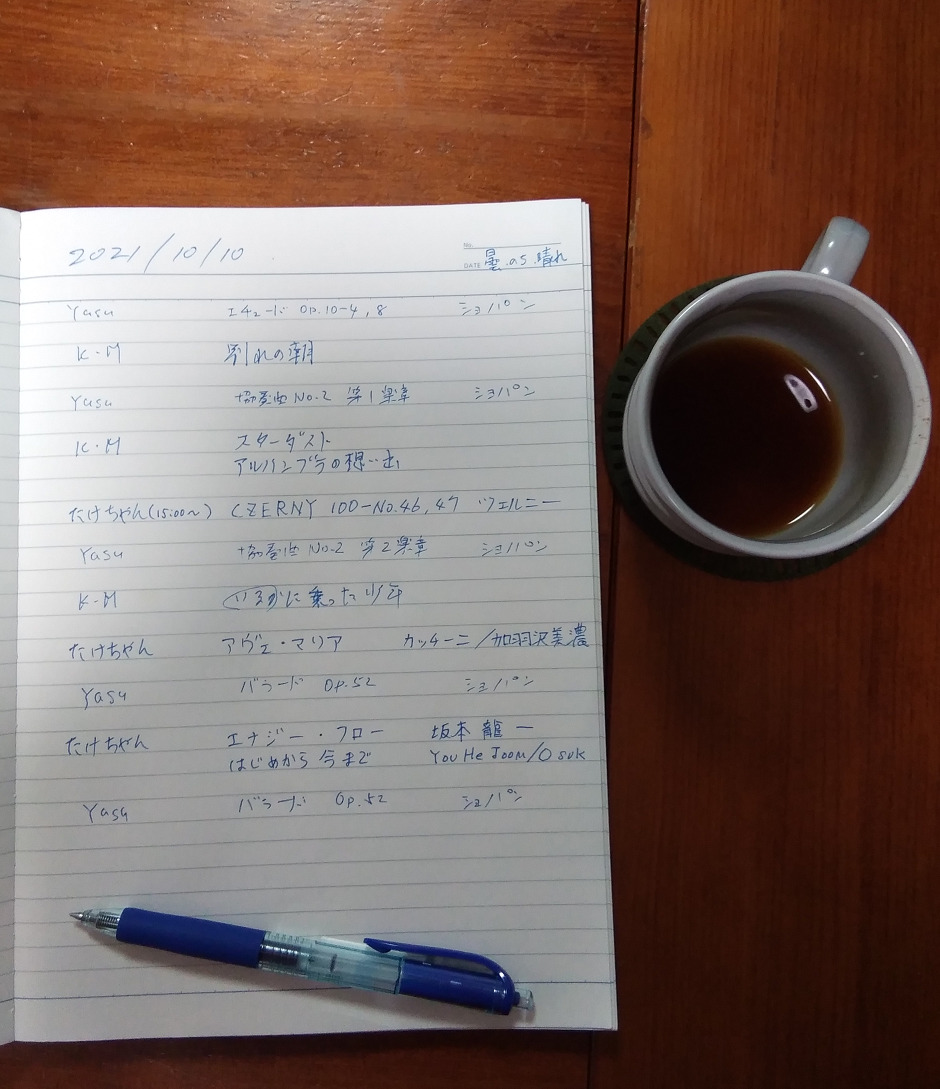 2021/10/10
No.
DATE 曇のち晴れ
Yasu エチュード Op.10-4,8 ショパン
K・M 別れの朝
Yasu 協奏曲 No.2 第1楽章 ショパン
K・M スターダスト
アルハンブラの想い出
たけちゃん(15:00〜) CZERNY 100-No.46,47 ツェルニー
Yasu 協奏曲 No.2 第2楽章 ショパン
K・M いるかに乗った少年
たけちゃん アヴェ・マリア カッチーニ/加羽沢美濃
Yasu バラード Op.52 ショパン
たけちゃん エナジー・フロー 坂本龍一
はじめから今まで You He Joon/O suk
Yasu バラード Op.52 ショパン